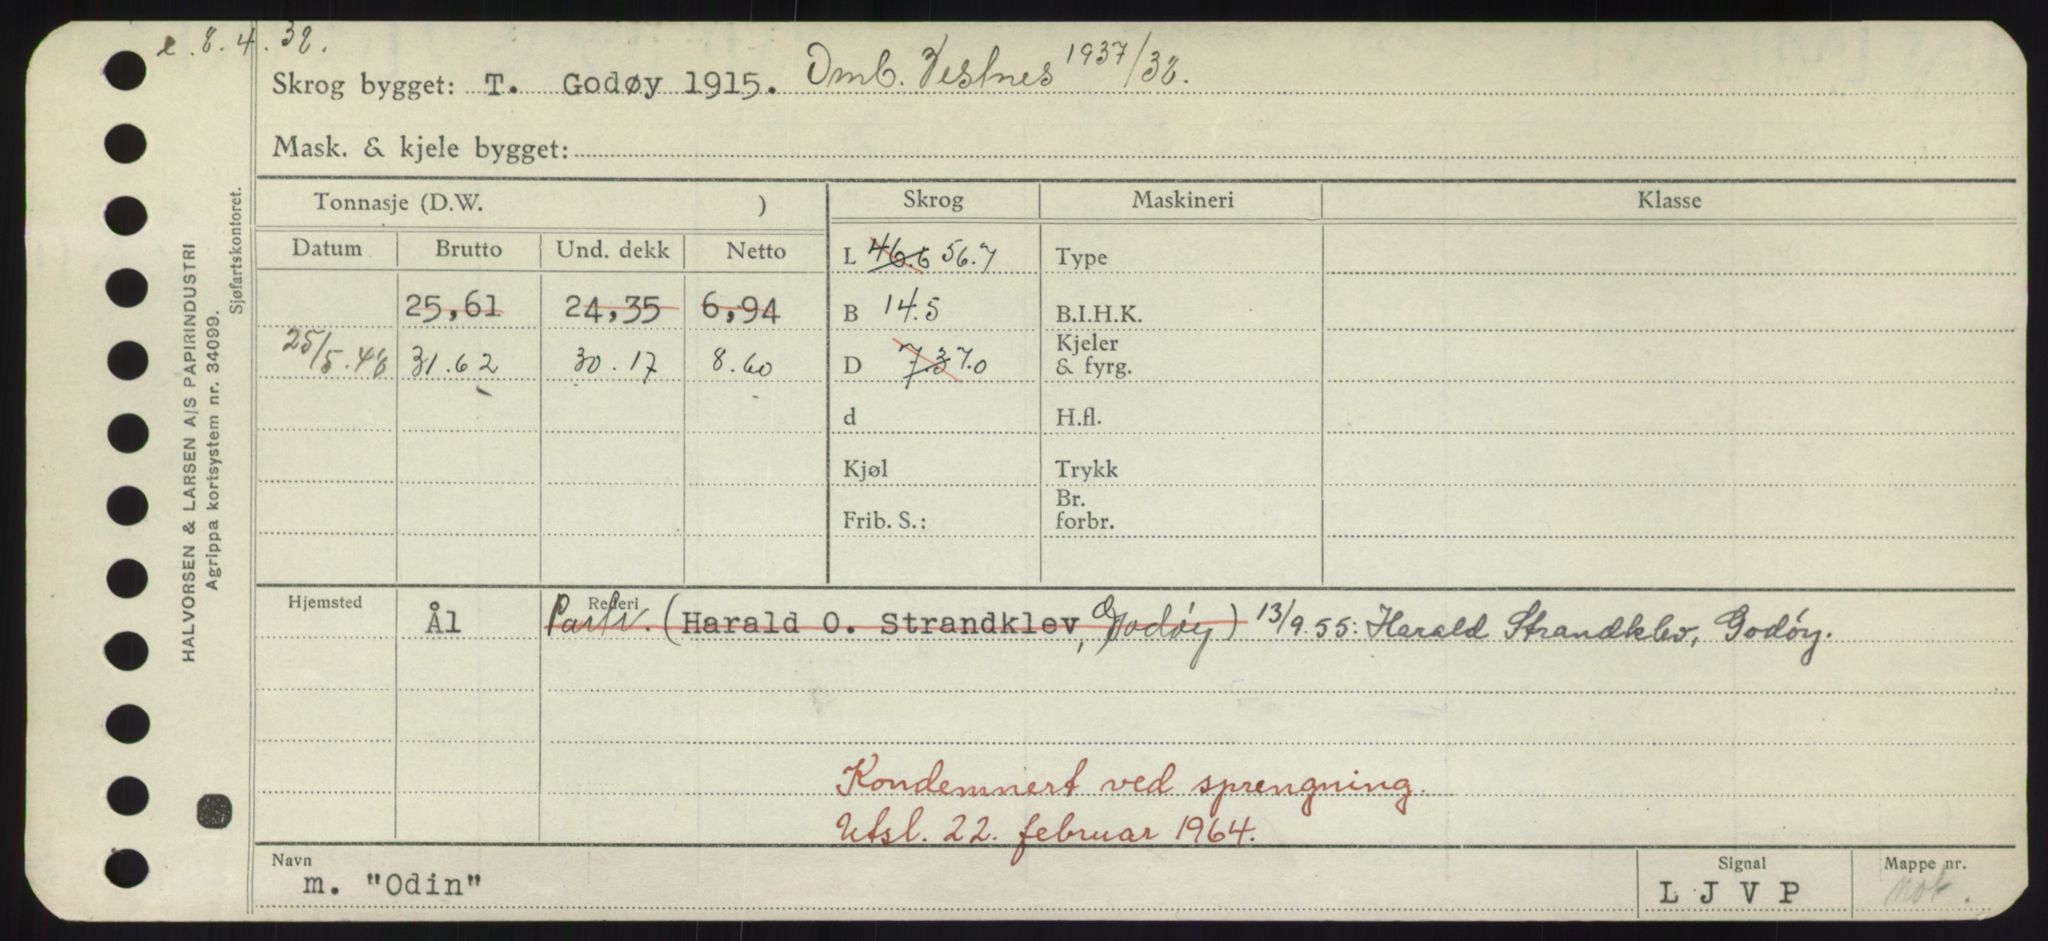 e. 8.4.38.
Skrog bygget: T. Godøy 1915. Omb. Vestnes 1937/38.
Mask. & kjele bygget:
HALVORSEN & LARSEN A/S PAPIRINDUSTRI
Agrippa kortsystem nr. 34099.
Sjøfartskontoret.
Tonnasje (D.W. ) Skrog Maskineri Klasse
Datum Brutto Und. dekk Netto
L 46.6 56.7 Type
25,61 24,35 6,94 B 14.5 B.I.H.K.
25/5.48 31.62 30.17 8.60 D 7.3 7.0 Kjeler & fyrg.
d H.fl.
Kjøl Trykk
Frib. S.: Br. forbr.
Hjemsted Ål Rederi Partr. (Harald O. Strandklev, Godøy) 13/9.55: Harald Strandklev, Godøy.
Kondemnert ved sprengning.
Utsl. 22. februar 1964.
Navn Signal Mappe nr.
m. "Odin" L J V P mot.